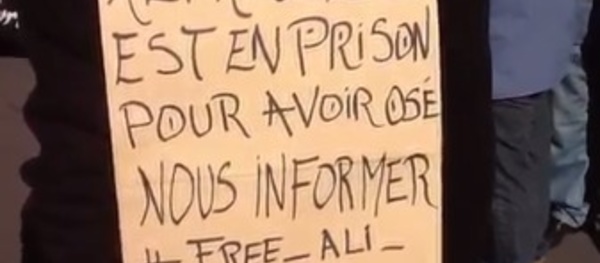 EST EN PRiSON
POUR AVOiR OSÉ
NOUS iNFORMER
# FREE_ ALI_